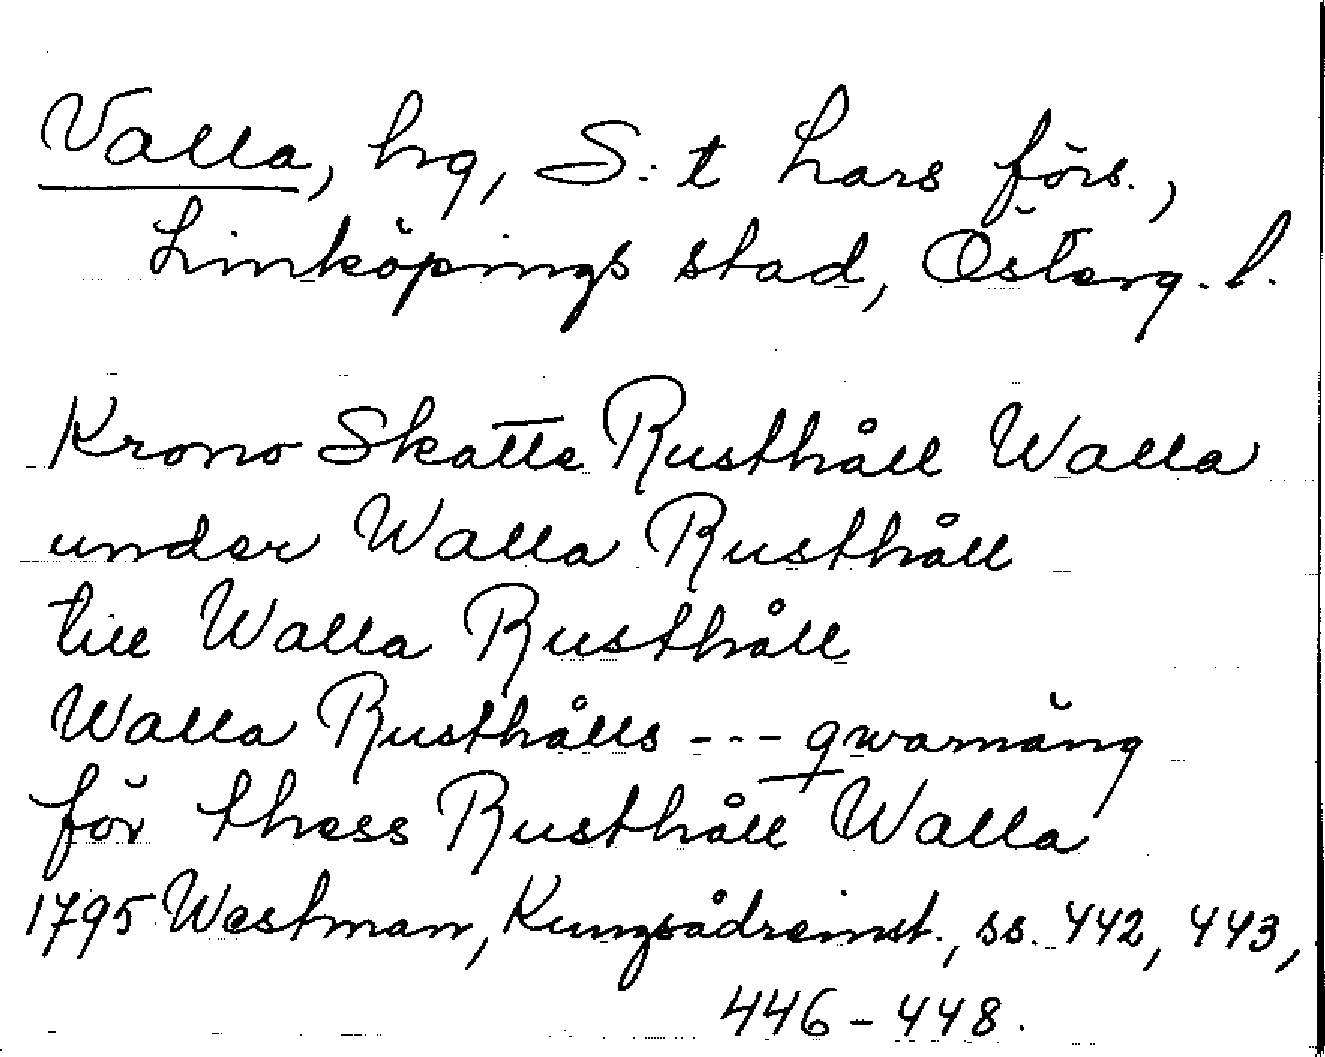 Valla, hg, S:t Lars förs.,
Linköpings stad, Österg. l.
Krono Skatte Rusthåll Walla
under Walla Rusthåll
till Walla Rusthåll
Walla Rusthålls --- qwarnäng
för thess Rusthåll Walla
1795 Westman, Kungsådreinst., ss. 442, 443,
446-448.